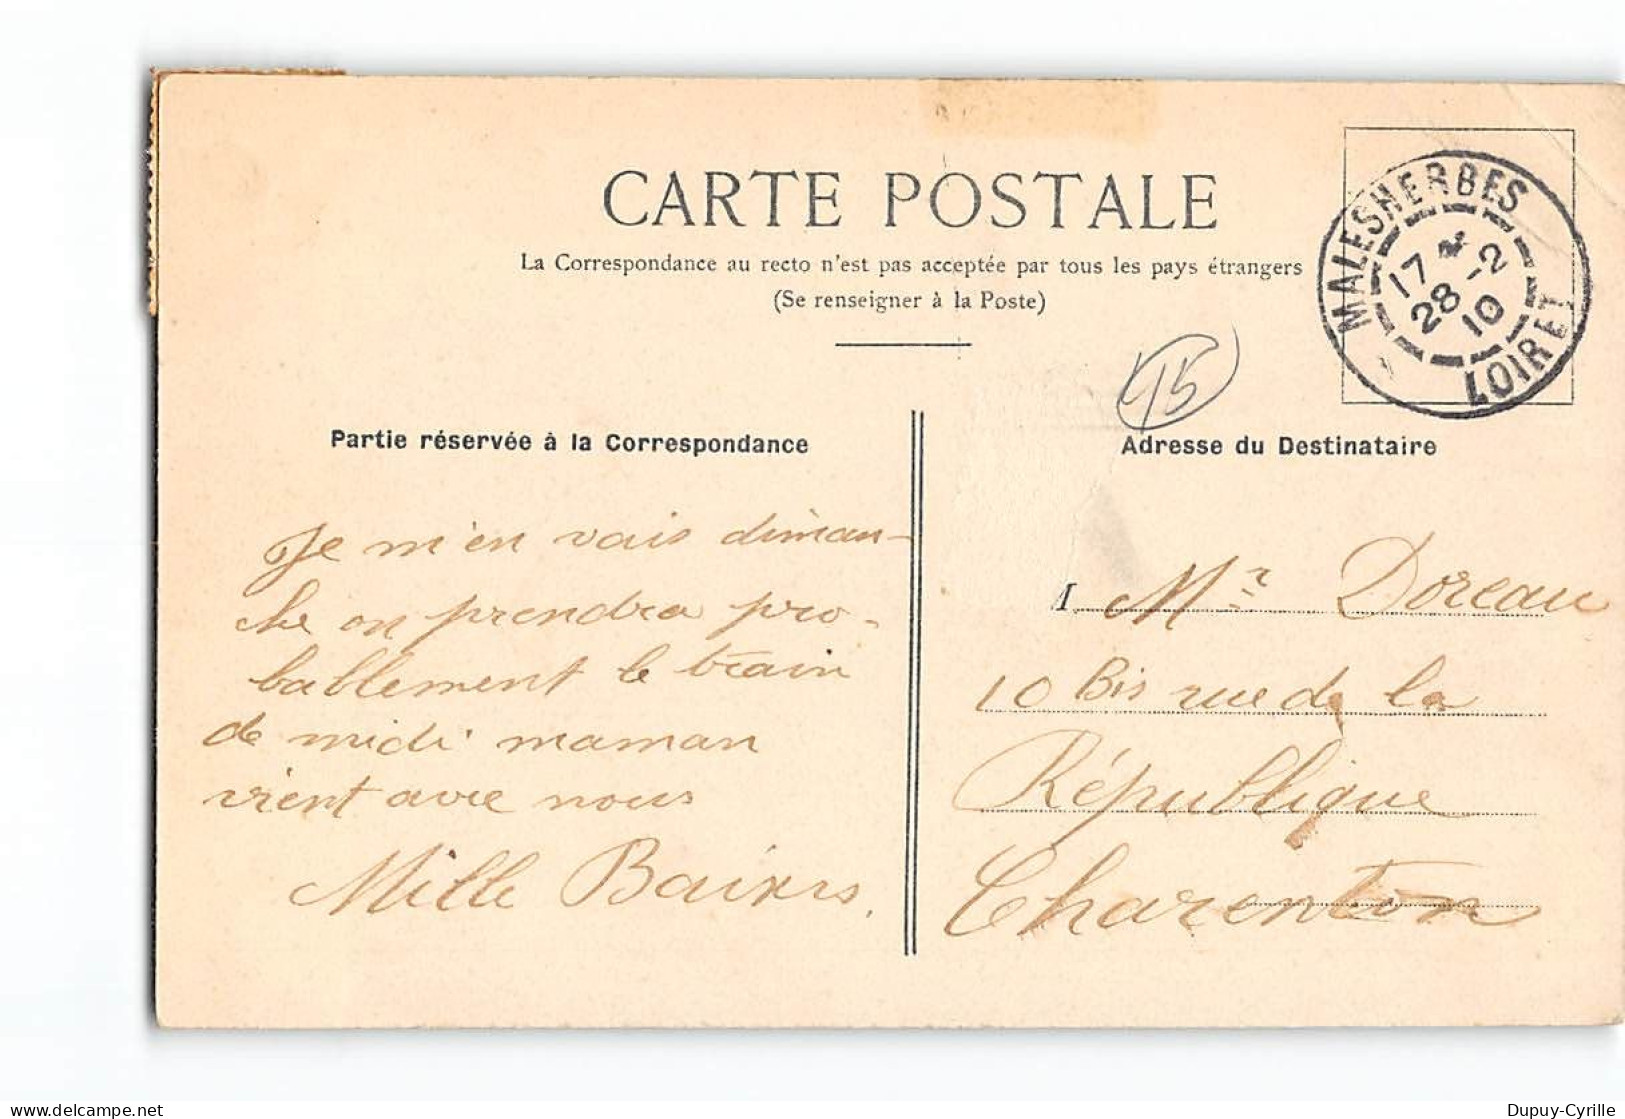 CARTE POSTALE
La Correspondance au recto n'est pas acceptée par tous les pays étrangers
(Se renseigner à la Poste)
MALESHERBES
17 28-2 10
LOIRET
15
Partie réservée à la Correspondance
Je m'en vais diman-
che on prendra pro-
bablement le train
de midi maman
vient avec nous
Mille Baisers.
Adresse du Destinataire
M. Mr Doreau
10 Bis rue de la
République
Charenton
Dupuy-Cyrille